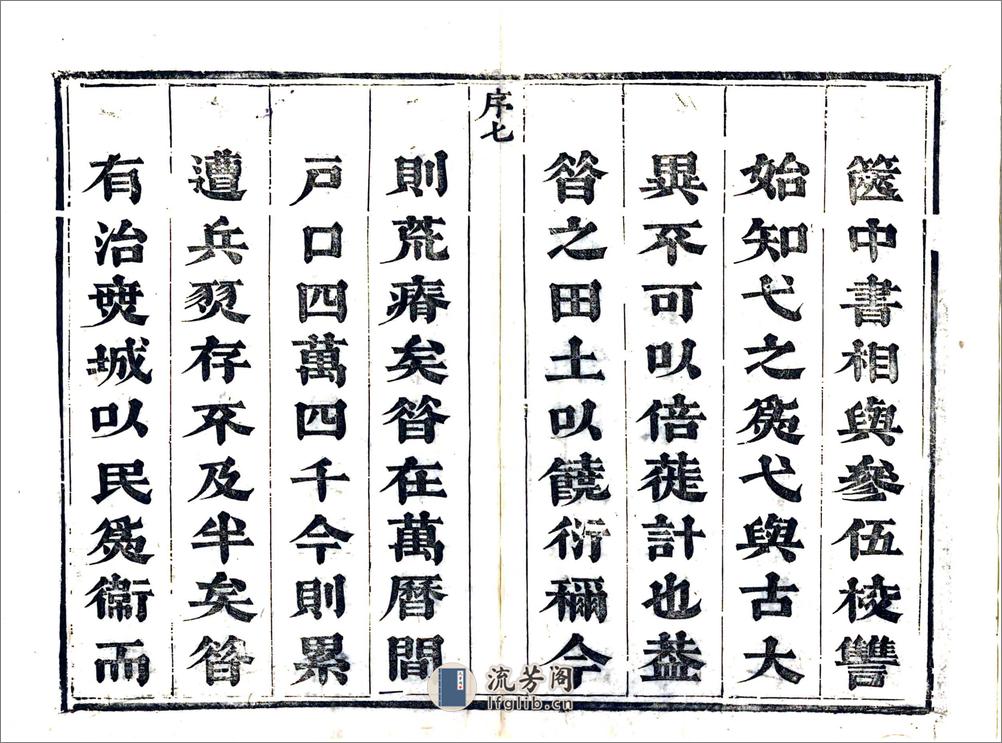 篋中書相與參伍校讐
始知弋之爲弋與古大
異不可以倍蓰計也葢
昔之田土以饒衍稱今
序七
則荒瘠矣昔在萬曆間
戸口四萬四千今則累
遭兵燹存不及半矣昔
有治無城以民爲衛而
流芳阁
lfglib.cn